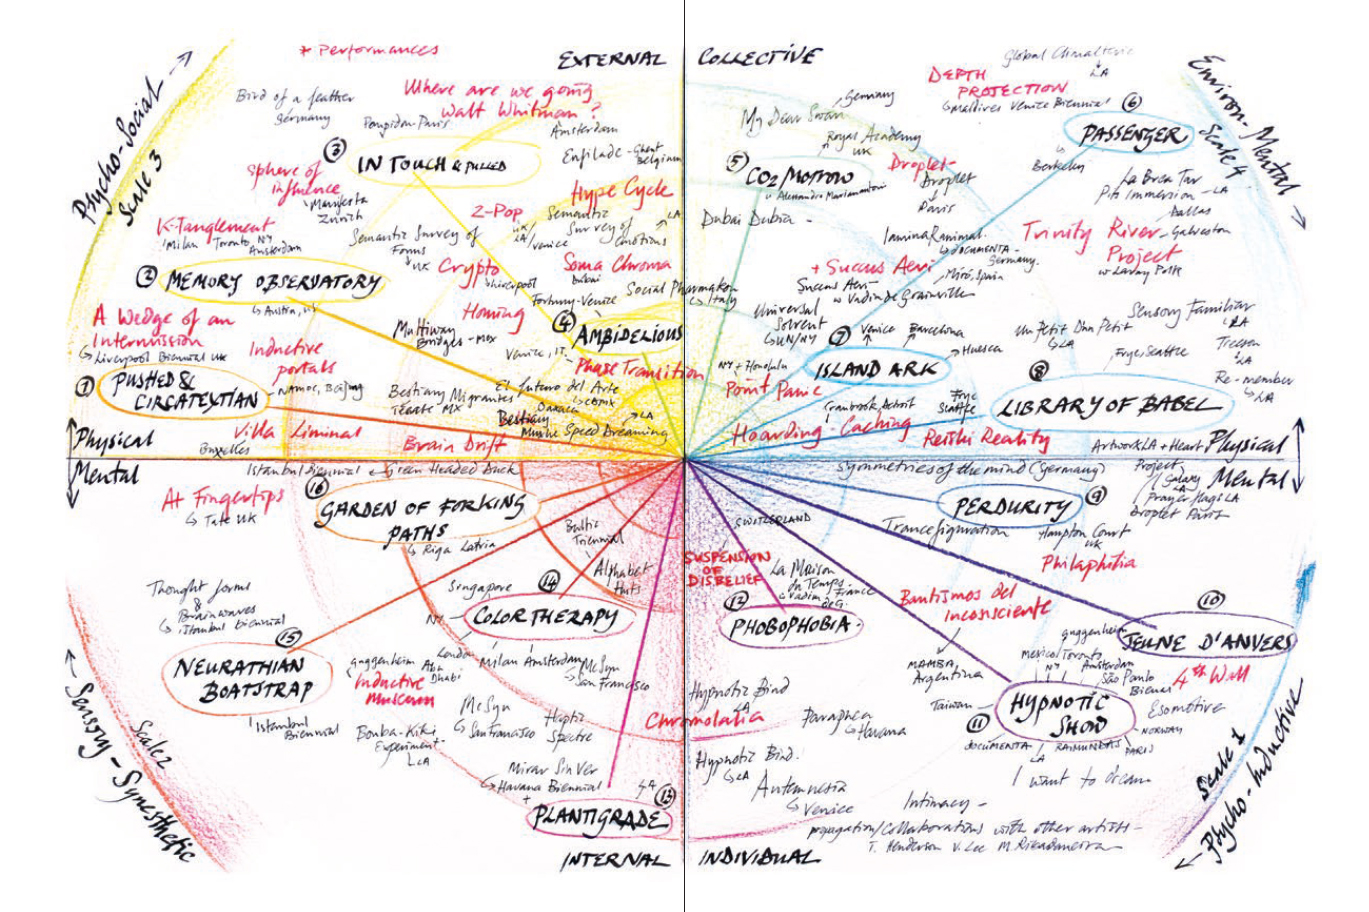 * Performances
EXTERNAL
COLLECTIVE
Global Climatronic
LA
Psycho-Social
Scale 3
Environ-Mental
Scale 4
Bird of a feather
Germany
Where are we going
Walt Whitman?
Amsterdam
Pompidou-Paris
3
IN TOUCH & PULLED
Enfilade - Ghent
Belgium
Sphere of
influence
Manifesta
Zurich
Hype Cycle
Z-Pop
UK
LA
Venice
Semantic
Survey of
emotions
LA
K-Tanglement
Milan Toronto NY
Amsterdam
Semantic Survey of
Forms
UK
Crypto
Liverpool
Soma Chroma
Dubai
Social Pharmakon
Italy
2
MEMORY OBSERVATORY
Austria, US
Fortuny-Venice
Homing
4
AMBIDELIOUS
A Wedge of an
Intermission
Liverpool Biennial UK
Multiway
Bridges - MOX
Venice, IT
Phase Transition
Inductive
portals
Namoc, Beijing
1
PUSHED &
CIRCATEXTIAN
Bestiary Migrantes
Texate MX
El futuro del Arte
CDMX
Oaxaca
Bestiary
Muské Speed Dreaming
LA
Villa Liminal
Bruxelles
Brain Drift
Physical
Mental
DEPTH
PROJECTION
Maldives Venice Biennial
6
PASSENGER
Berkeley
My Dear Swan
Germany
Royal Academy
UK
5
CO2 MORROW
w Alessandro Marianantoni
Droplet
Droplet
Paris
La Brea Tar
Pits Immersion
LA
Dallas
Galveston
Dubai Dubia
Trinity River
Project
w Lavay Path
Iamina Ranimal
DOCUMENTA
Germany
+ Succus Aeri
Succus Aeri
w Vadim de Grainville
Miró, Spain
Universal
Solvent
UN/NY
7
Venice
Barcelona
Huesca
ISLAND ARK
NY + Honolulu
Point Panic
Cranbrook, Detroit
Hoarding Caching
Frye
Seattle
Reishi Reality
Un Petit Dan Petit
LA
Sensory Familiar
LA
Treesen
LA
Frye, Seattle
Re-member
LA
8
LIBRARY OF BABEL
Artwork LA + Heart
Physical
Mental
Istanbul Biennial
Green Headed Duck
16
GARDEN OF FORKING
PATHS
Riga Latvia
At Fingertips
Tate UK
Baltic
Triennial
Alphabet
Huts
Thought forms
&
Brainwaves
Istanbul Biennial
15
NEURATHIAN
BOATSTRAP
Istanbul
Biennial
Singapore
14
COLOR THERAPY
NY
London
Milan
Amsterdam
McSyn
San Francisco
Guggenheim
Abu
Dhabi
Inductive
Museum
McSyn
San Francisco
Haptic
Spectre
Bouba-Kiki
Experiment
LA
Mirar Sin Ver
Havana Biennial
+
LA
13
PLANTIGRADE
Sensory-Synesthetic
Scale 2
INTERNAL
INDIVIDUAL
Symmetries of the mind (Germany)
Project
Galaxy
LA
Prayer flags LA
Droplet Paris
PERDURITY
9
SWITZERLAND
Trancefiguration
Hampton Court
UK
SUSPENSION
OF
DISBELIEF
La Maison
du Temps
France
Vadim de G.
Philaphilia
12
PHOBOPHOBIA
Bautismos del
inconsciente
MAMBA
Argentina
10
JEUNE D'ANVERS
4th Wall
Guggenheim
Mexico Toronto
NY
Amsterdam
São Paulo
Bienal
Taiwan
11
HYPNOTIC
SHOW
Esomotive
NORWAY
PARIS
DOCUMENTA
LA
RAIMUNDAS
Hypnotic Bind
LA
Chromolalia
Paraphea
Havana
Hypnotic Bind
LA
Autamnesia
Venice
I want to dream
Intimacy -
propagation/Collaborations with other artists -
T. Henderson V. Lee M. Rieadmeira
Scale 1
Psycho-Inductive